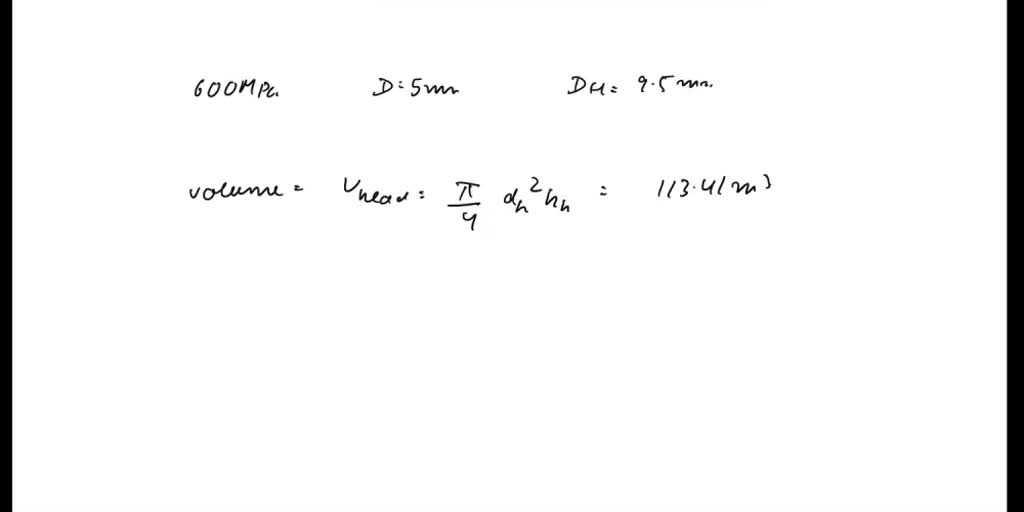 600MPa. D=5mm DH= 9.5mm.
volume = Vhead = π/4 dh²hh = 113.41m³